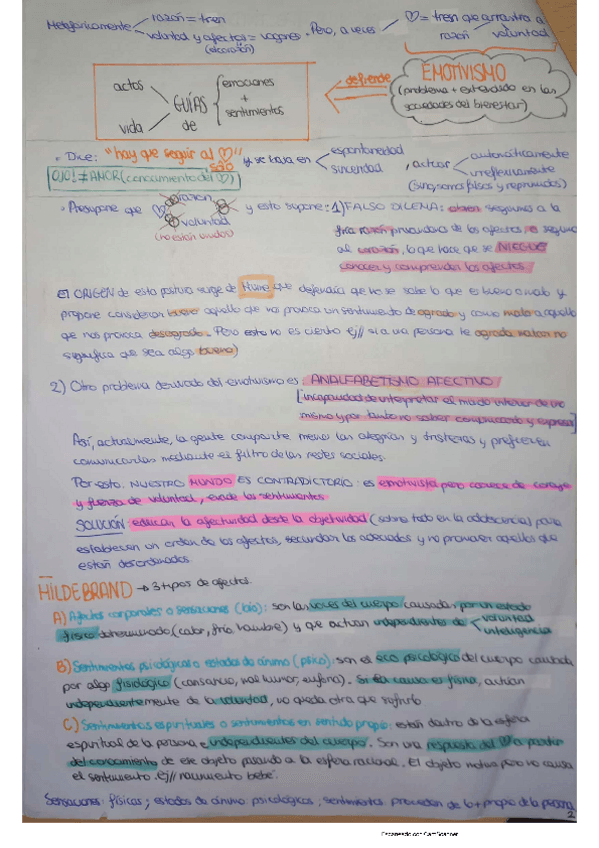 Metafóricamente razón = tren
voluntad y afectos = vagones. Pero, a veces
(el corazón)
♡ = tren que arrastra a
razón voluntad
actos
vida
GUÍAS
de
emociones
+
sentimientos
defiende
EMOTIVISMO
(problema + extendido en las
sociedades del bienestar)
• Dice: "hay que seguir al ♡" y se basa en espontaneidad
sinceridad
, actuar automáticamente
irreflexivamente
(sino, somos falsos y reprimidos)
sólo
OJO! ≠ AMOR (conocimiento del ♡)
• Presupone que ♡ razón
voluntad
(no están unidos)
y esto supone: 1) FALSO DILEMA: seguimos a la
fría razón privadora de los afectos o seguir
al corazón, lo que hace que se NIEGUE
conocer y comprender los afectos.
El ORIGEN de esta postura surge de Hume que defendía que no se sabe lo que es bueno o malo y
propone consideran bueno aquello que nos provoca un sentimiento de agrado y como malo a aquello
que nos provoca desagrado. Pero esto no es cierto ej// si a una persona le agrada matar no
significa que sea algo bueno)
2) Otro problema derivado del emotivismo es: ANALFABETISMO AFECTIVO
[incapacidad de interpretar el mundo interior de uno
mismo y por tanto no saber comunicarlo y expresarlo]
Así, actualmente, la gente comparte menos las alegrías y tristezas y prefieren
comunicarlas mediante el filtro de las redes sociales.
Por esto, NUESTRO MUNDO ES CONTRADICTORIO: es emotivista pero carece de coraje
y fuerza de voluntad, evade los sentimientos
SOLUCIÓN: educar la afectividad desde la objetividad (sobre todo en la adolescencia) para
establecer un orden de los afectos, secundar los adecuados y no promover aquellos que
están desordenados.
HILDEBRAND → 3 tipos de afectos.
A) Afectos corporales o sensaciones (bio): son las voces del cuerpo causadas por un estado
físico determinado (calor, frío, hambre) y que actúan independientes de voluntad
inteligencia
B) Sentimientos psicológicos o estados de ánimo (psico): son el eco psicológico del cuerpo causada
por algo fisiológico (cansancio, mal humor, euforia). Si la causa es física, actúan
independientemente de la voluntad, no queda otra que sufrirlo
C) Sentimientos espirituales o sentimientos en sentido propio: están dentro de la esfera
espiritual de la persona e independientes del cuerpo. Son una respuesta del ♡ a partir
del conocimiento de este objeto pasando a la esfera racional. El objeto motiva pero no causa
el sentimiento. Ej// nacimiento bebé.
Sensaciones: físicas; estados de ánimo psicológicos; sentimientos: proceden de lo + propio de la persona
2
Escaneado con CamScanner